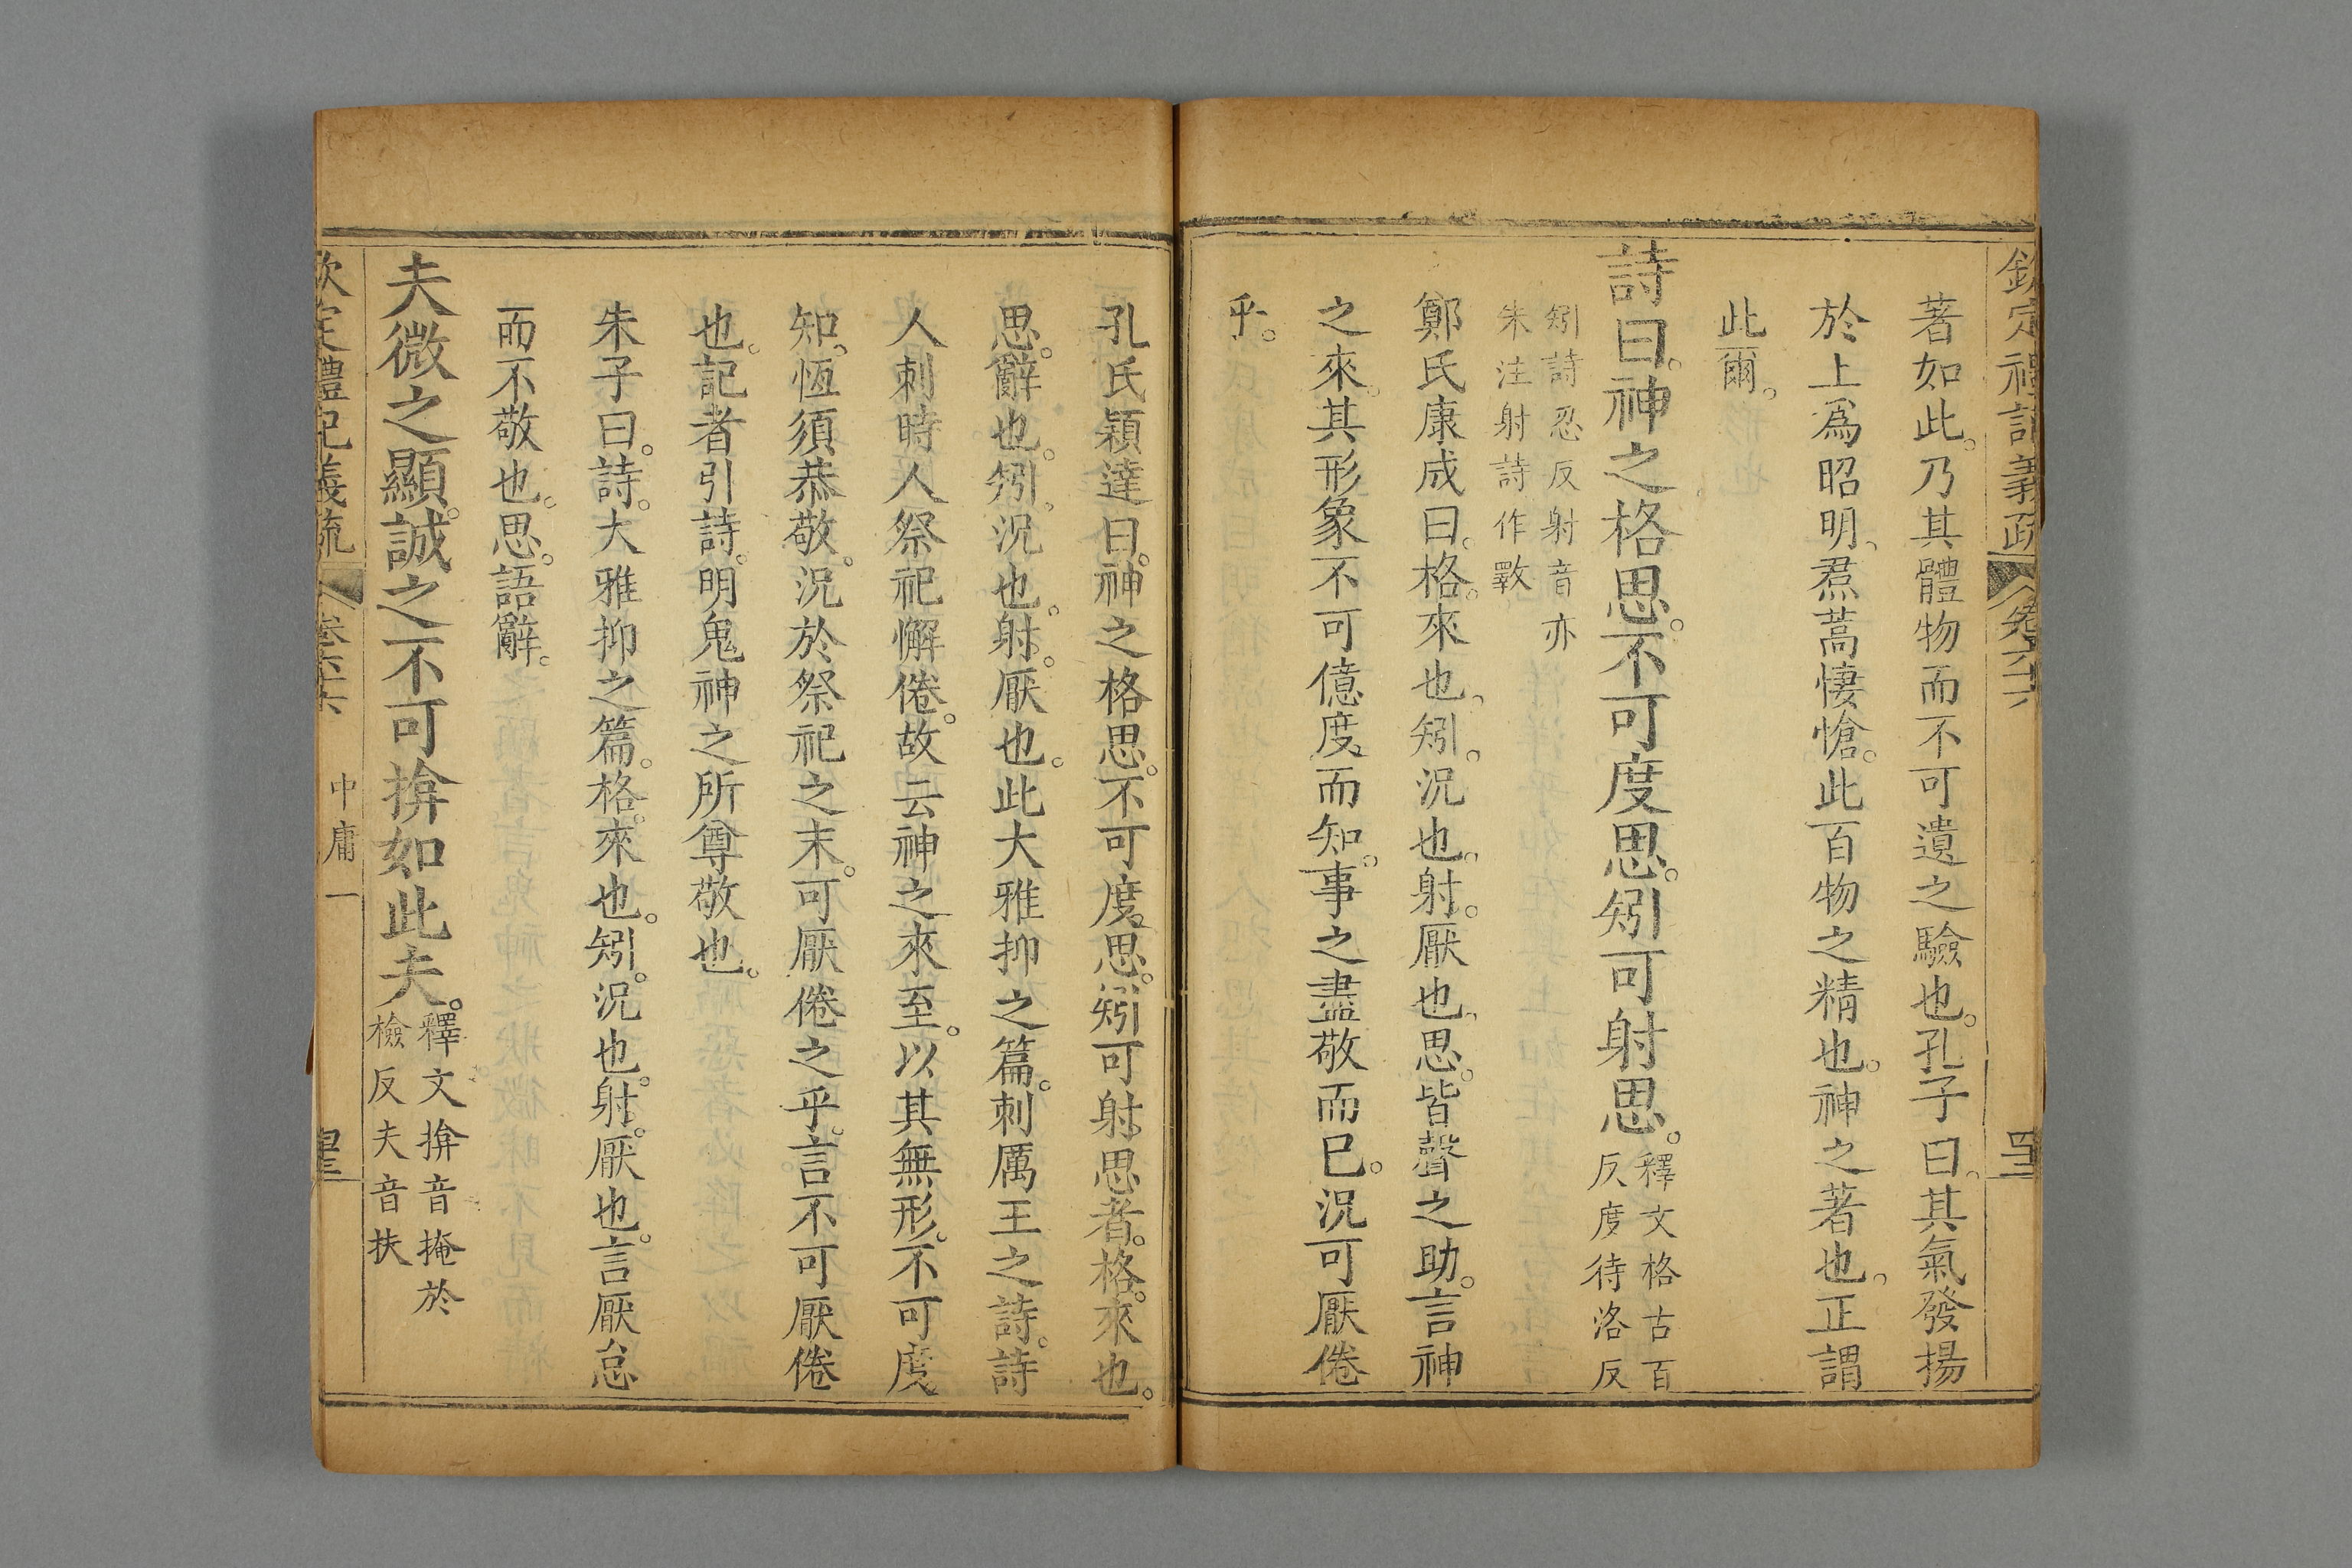 欽定禮記義疏 卷六十六
著如此。乃其體物而不可遺之驗也。孔子曰、其氣發揚
於上爲昭明、焄蒿悽愴。此百物之精也。神之著也、正謂
此爾。
詩曰。神之格思。不可度思。矧可射思。釋文格古百
反度待洛反
矧詩忍反射音亦
朱注射詩作斁
鄭氏康成曰。格。來也、矧、況也、射。厭也、思。皆聲之助。言神
之來。其形象不可億度而知。事之盡敬而已。況可厭倦
乎。
孔氏穎達曰。神之格思。不可度思。矧可射思者。格。來也。
思。辭也。矧、況也。射。厭也。此大雅抑之篇。刺厲王之詩。詩
人刺時人祭祀懈倦。故云神之來至。以其無形。不可度
知。恆須恭敬。況於祭祀之末。可厭倦之乎。言不可厭倦
也。記者引詩。明鬼神之所尊敬也。
朱子曰。詩。大雅抑之篇。格。來也。矧。況也。射。厭也。言厭怠
而不敬也。思。語辭。
夫微之顯。誠之不可揜如此夫。釋文揜音掩於
檢反夫音扶
欽定禮記義疏 卷六十六 中庸一